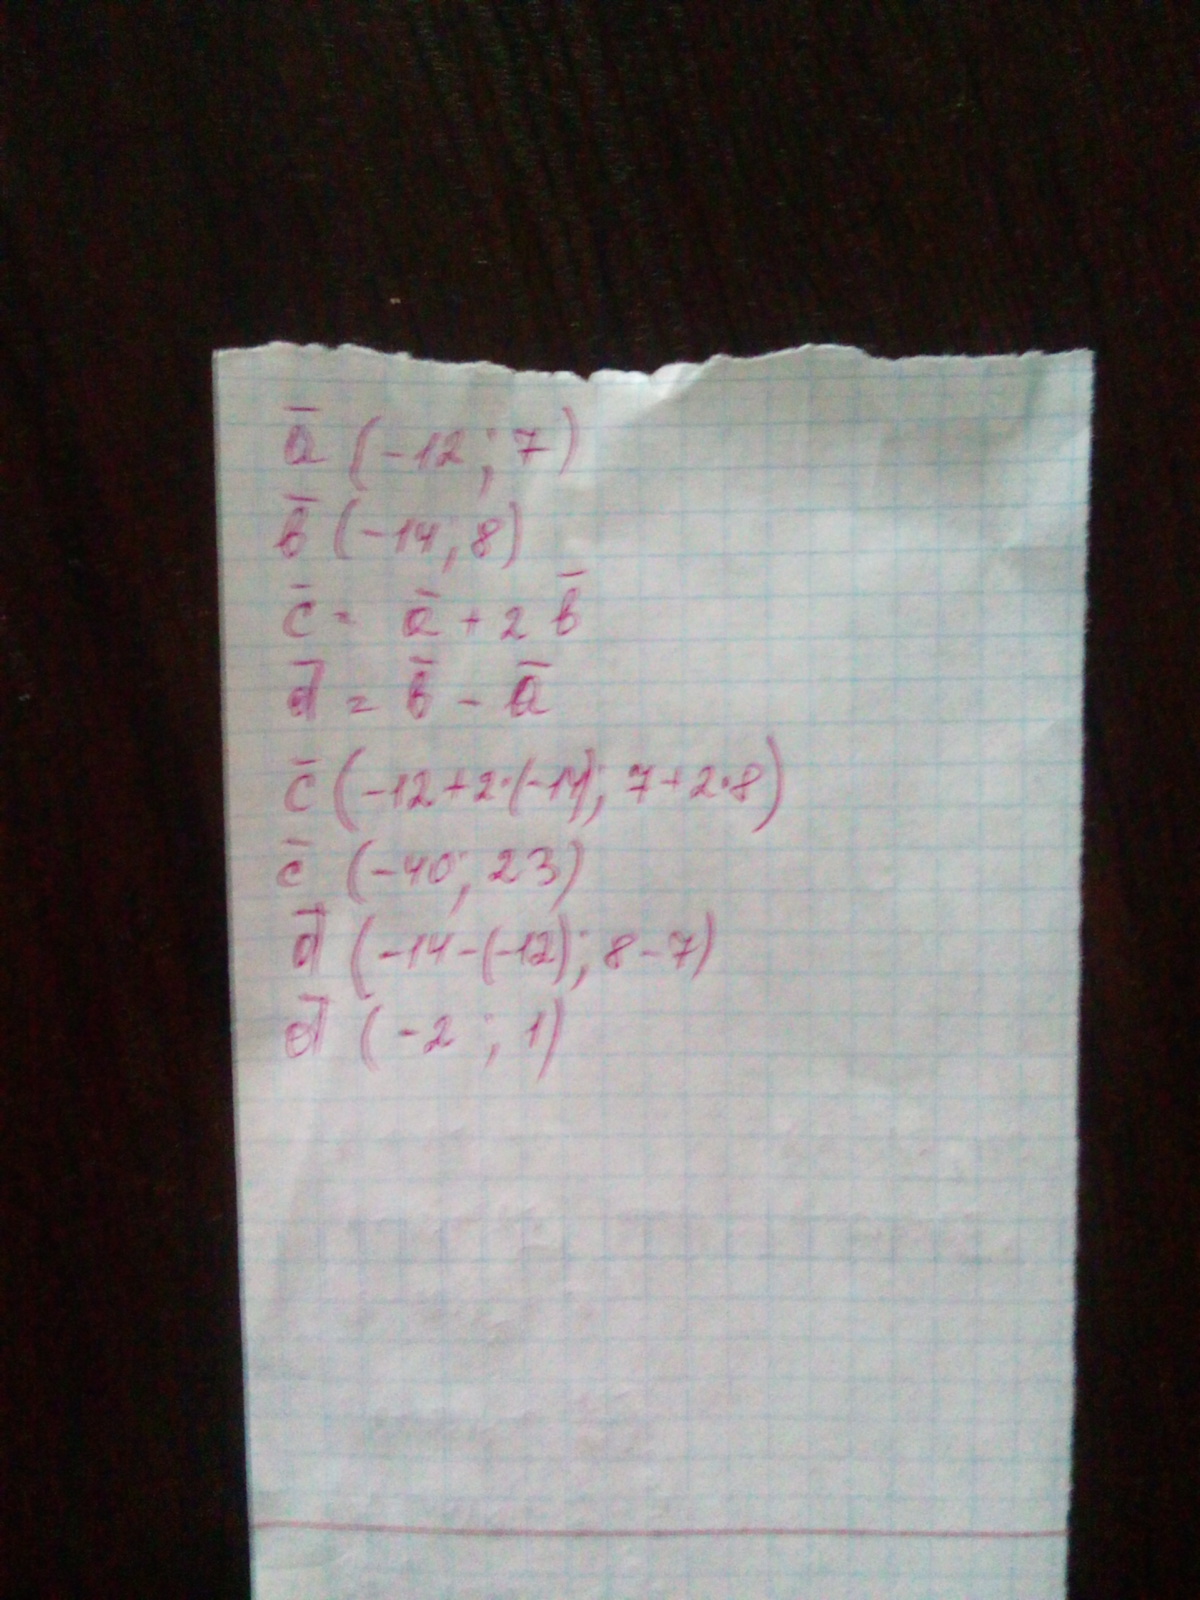 a̅ (-12; 7)
b̅ (-14; 8)
c̅ = a̅ + 2 b̅
d̅ = b̅ - a̅
c̅ (-12+2·(-14); 7+2·8)
c̅ (-40; 23)
d̅ (-14-(-12); 8-7)
d̅ (-2; 1)